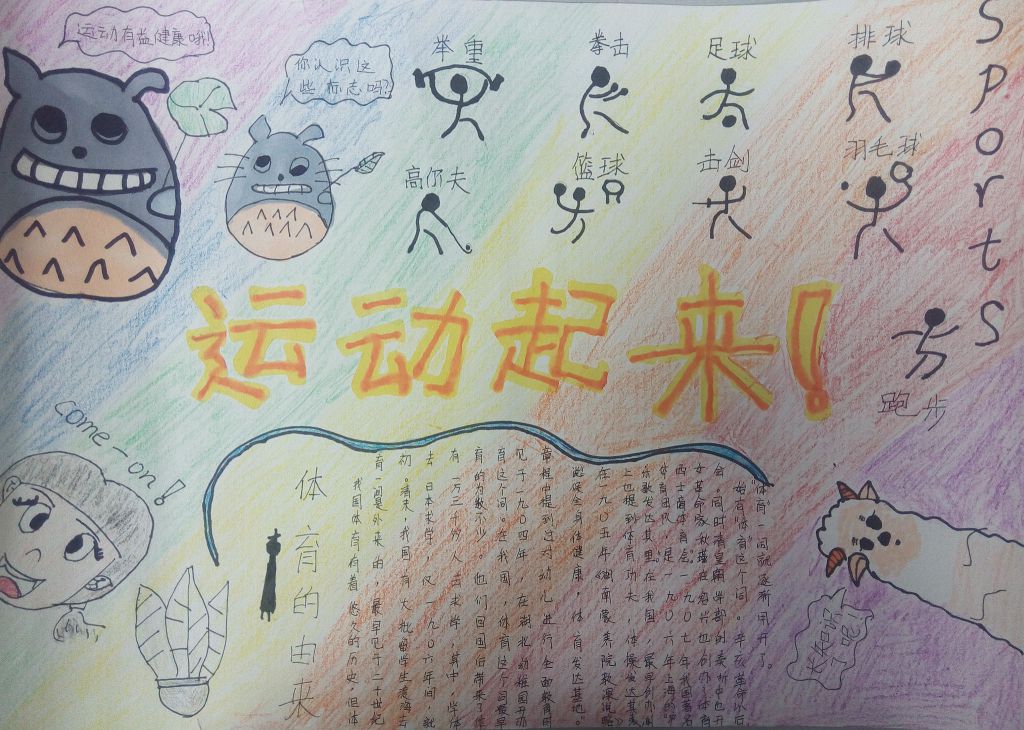 运动有益健康哦!
你认识这
些标志吗?
举重
拳击
足球
排球
高尔夫
篮球
击剑
羽毛球
sports
运动起来!
跑步
come-on!
体育的由来
我国体育有着悠久的历史，但体
育一词是外来的，最早见于二十世纪
初。清末，我国有大批留学生渡海去
去日本求学，仅一九〇六年间，就
有一万三千多人去求学，其中，学体
育的为数不少。他们回国后带来了体
育这个词。在我国，体育这个词最早
见于一九〇四年，在湖北幼稚园开办
章程中提到过对幼儿进行全面教育时
说保全身体健康，体育发达基地。
在一九〇五年《湖南蒙养院教课说略》
上也提到体育功夫，体操发达其表
乐歌发达其里。在我国，最早创办的
体育团队，是一九〇六年上海的沪
西士商体育会。一九〇七年我国著名
女革命家秋瑾在绍兴也创办了体育
会，同时清皇朝学部的奏折中也开
始有“体育”这个词。辛亥革命以后
“体育”一词就逐渐用开了。
长知识
了呢!